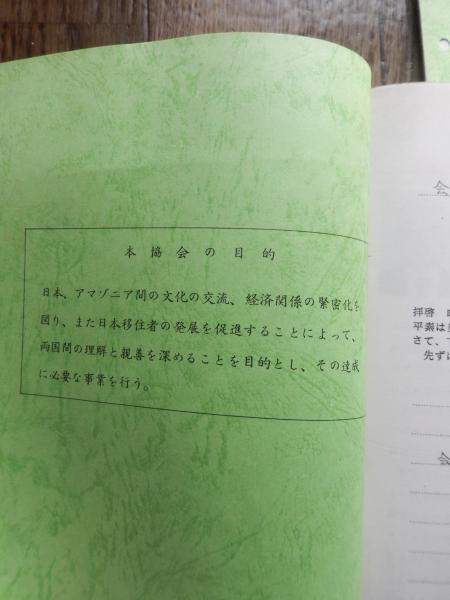 本協会の目的
日本、アマゾニア間の文化の交流、経済関係の緊密化を
図り、また日本移住者の発展を促進することによって、
両国間の理解と親善を深めることを目的とし、その達成
に必要な事業を行う。
会
拝啓
平素は
さて、
先ず
会